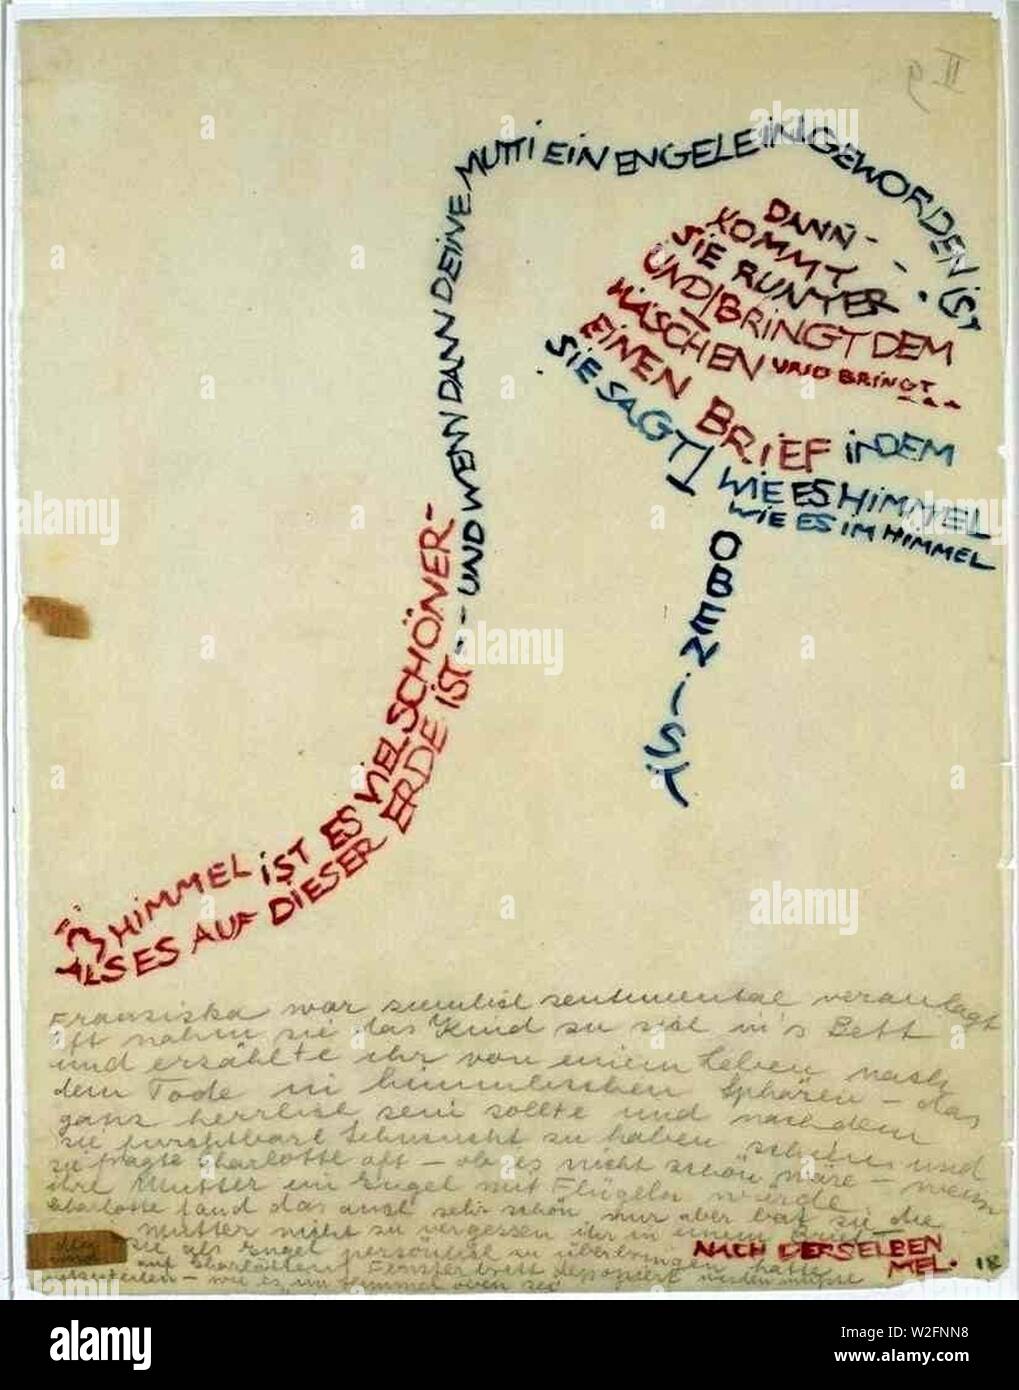 II g
HIMMEL IST ES VIEL SCHÖNER-
ALS ES AUF DIESER ERDE IST - - -
UND WENN DANN DEINE MUTTI EIN ENGELEIN GEWORDEN IST
DANN - - -
KOMMT
SIE RUNTER
UND BRINGT DEM
HÄSCHEN UND BRINGT - - -
EINEN BRIEF IN DEM
SIE SAGT WIE ES HIMMEL
WIE ES IM HIMMEL
OBEN IST
Franziska war ziemlich sentimental veranlagt
oft nahm sie das Kind zu sich in's Bett
und erzählte ihr von einem Leben nach
dem Tode in himmlischen Sphären – das
ganz herrlich sein sollte und nachdem
sie furchtbare Sehnsucht zu haben schien und
sie fragte Charlotte oft – ob es nicht schön wäre – wenn
ihre Mutter ein Engel mit Flügeln würde
Charlotte fand das auch sehr schön nur aber bat sie die
Mutter nicht zu vergessen ihr in einem Brief –
den sie als Engel persönlich zu überbringen hätte
und auf Charlottens Fensterbrett deponiert werden müsste
mitzuteilen – wie es im Himmel oben sei
NACH DERSELBEN
MEL.
18
alamy
alamy
alamy
W2FNN8
www.alamy.com